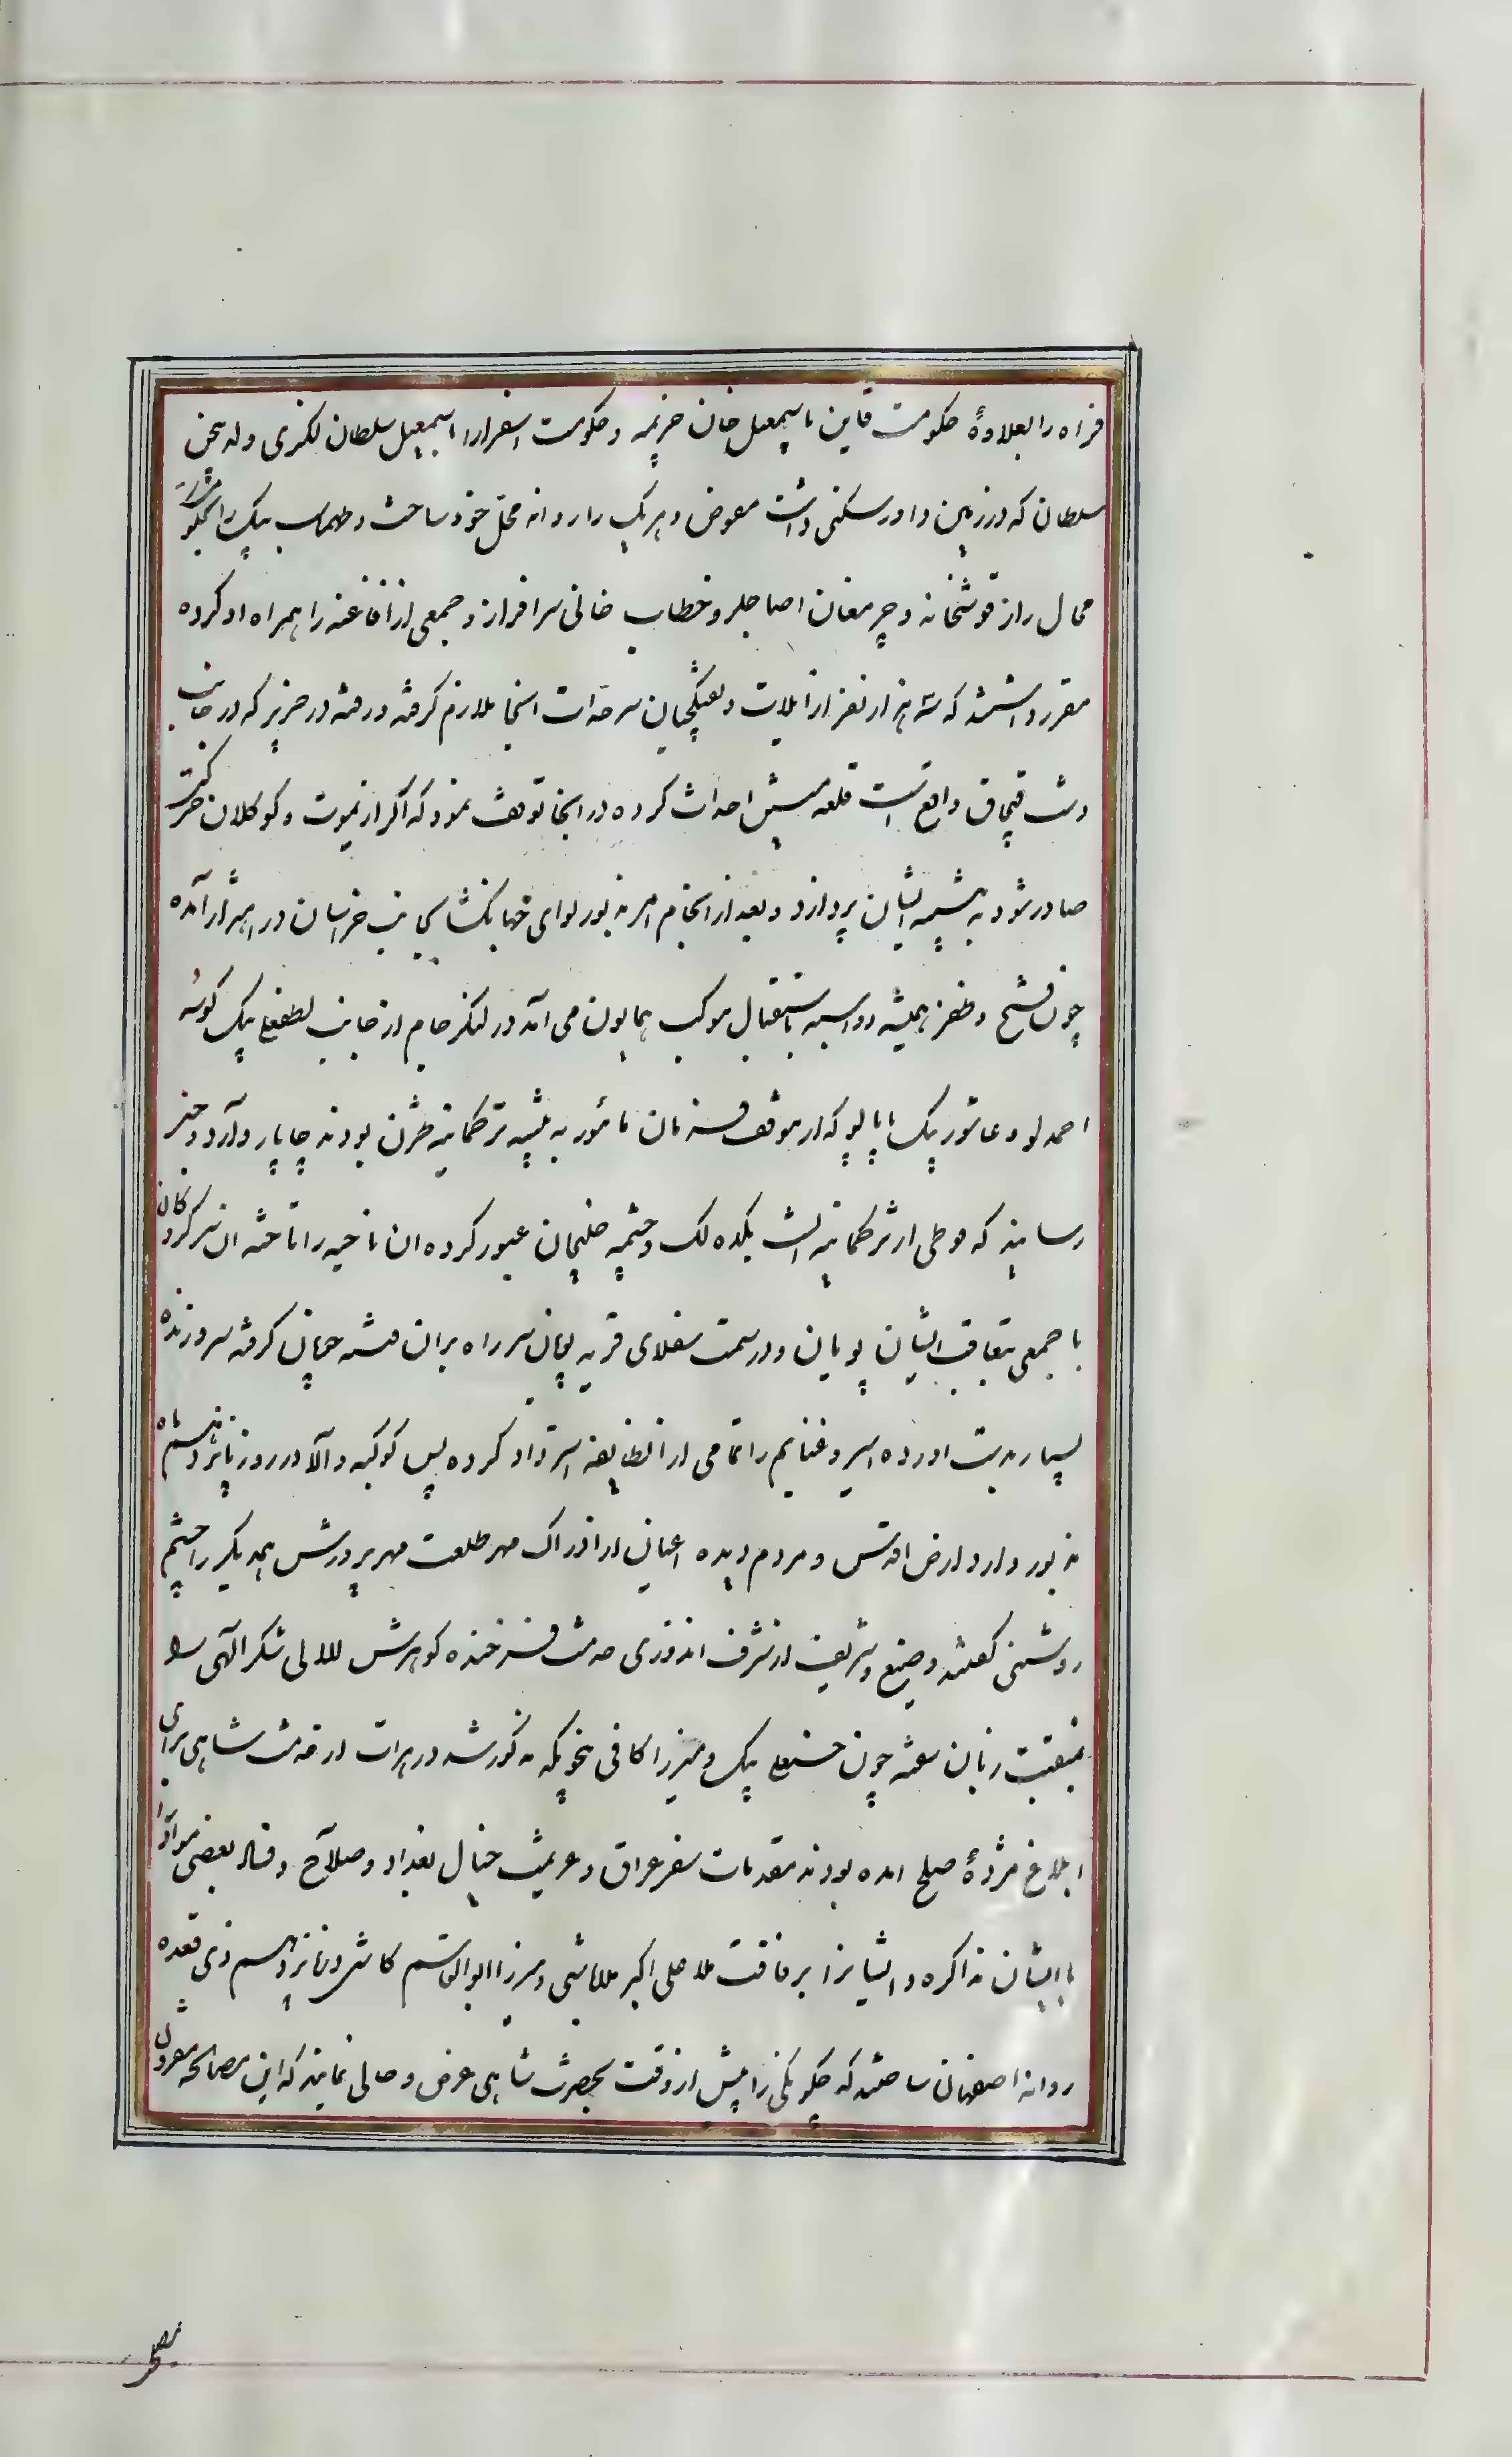 فراه را بعلاوهٔ حکومت قاین باسمعیل خان خزیمه و حکومت اسفرار را باسمعیل سلطان لکزی ولد حسن
سلطان که در زمین داور سکنی داشت مفوض و هریک را روانه محلّ خود ساخت و طهماسب بیک را
محال راز قوشخانه و جرمغان اصاجلر و خطاب خانی سرافراز و جمعی از افاغنه را همراه او کرده
مقرر داشتند که سه هزار نفر از ایلات و تفنگچیان سرحدات انجا ملازم کرفته و رفته در خربر که در جانب
دشت قپچاق واقع است قلعه متین احداث کرده در انجا توقف نمود که اگر از یموت و کوکلان حرکت
صادر شود به تنبیه ایشان پردازد و بعد از انجام امر مزبور لوای جهانکشا بجانب خراسان در اهتزاز آمده
چون فتح و ظفر همیشه دو اسبه باستقبال موکب همایون می آمد در لنکر جام از جانب لطفعلی بیک کوسه
احمدلو و عاشور بیک پاپالو که از موقف فرمان مأمور به تنبیه ترکمانیه طژن بودند چاپار وارد و خبر
رسانید که فوجی از ترکمانیه از پشت یکده لک و چشمه خلیجان عبور کرده ان ناحیه را تاخته ان سرکردکان
با جمعی بتعاقب ایشان پویان و در سمت سفلای قریه پومان سر راه بران فتنه جویان کرفته سر و زنده
بسیار بدست اورده اسیر و غنایم را تمامی از انطایفه استرداد کرده پس کوکبه والا در روز پانزدهم ماه
مزبور وارد ارض اقدس و مردم دیده اعیان از ادراک مهر طلعت مهر پرورش همدیکر را چشم
روشنی کفتند وضیع و شریف از شرف اندوزی خدمت فرخنده کوهرش للالی شکر الهی را
بمثقب زبان سفته چون حسنعلی بیک و میرزا کافی بنحویکه مذکور شد در هرات از خدمت شاهی برای
ابلاغ مژدهٔ صلح امده بودند مقدمات سفر عراق و عزیمت خیال بغداد و صلاح و فساد بعضی مواد را
با ایشان مذاکره و ایشانرا برفاقت ملا علی اکبر ملاباشی و میرزا ابوالقاسم کاشی در پانزدهم ذی قعده
روانه اصفهان ساختند که چکونکی را پیش از وقت بحضرت شاهی عرض و حالی نمایند که این مصالحه مقرون